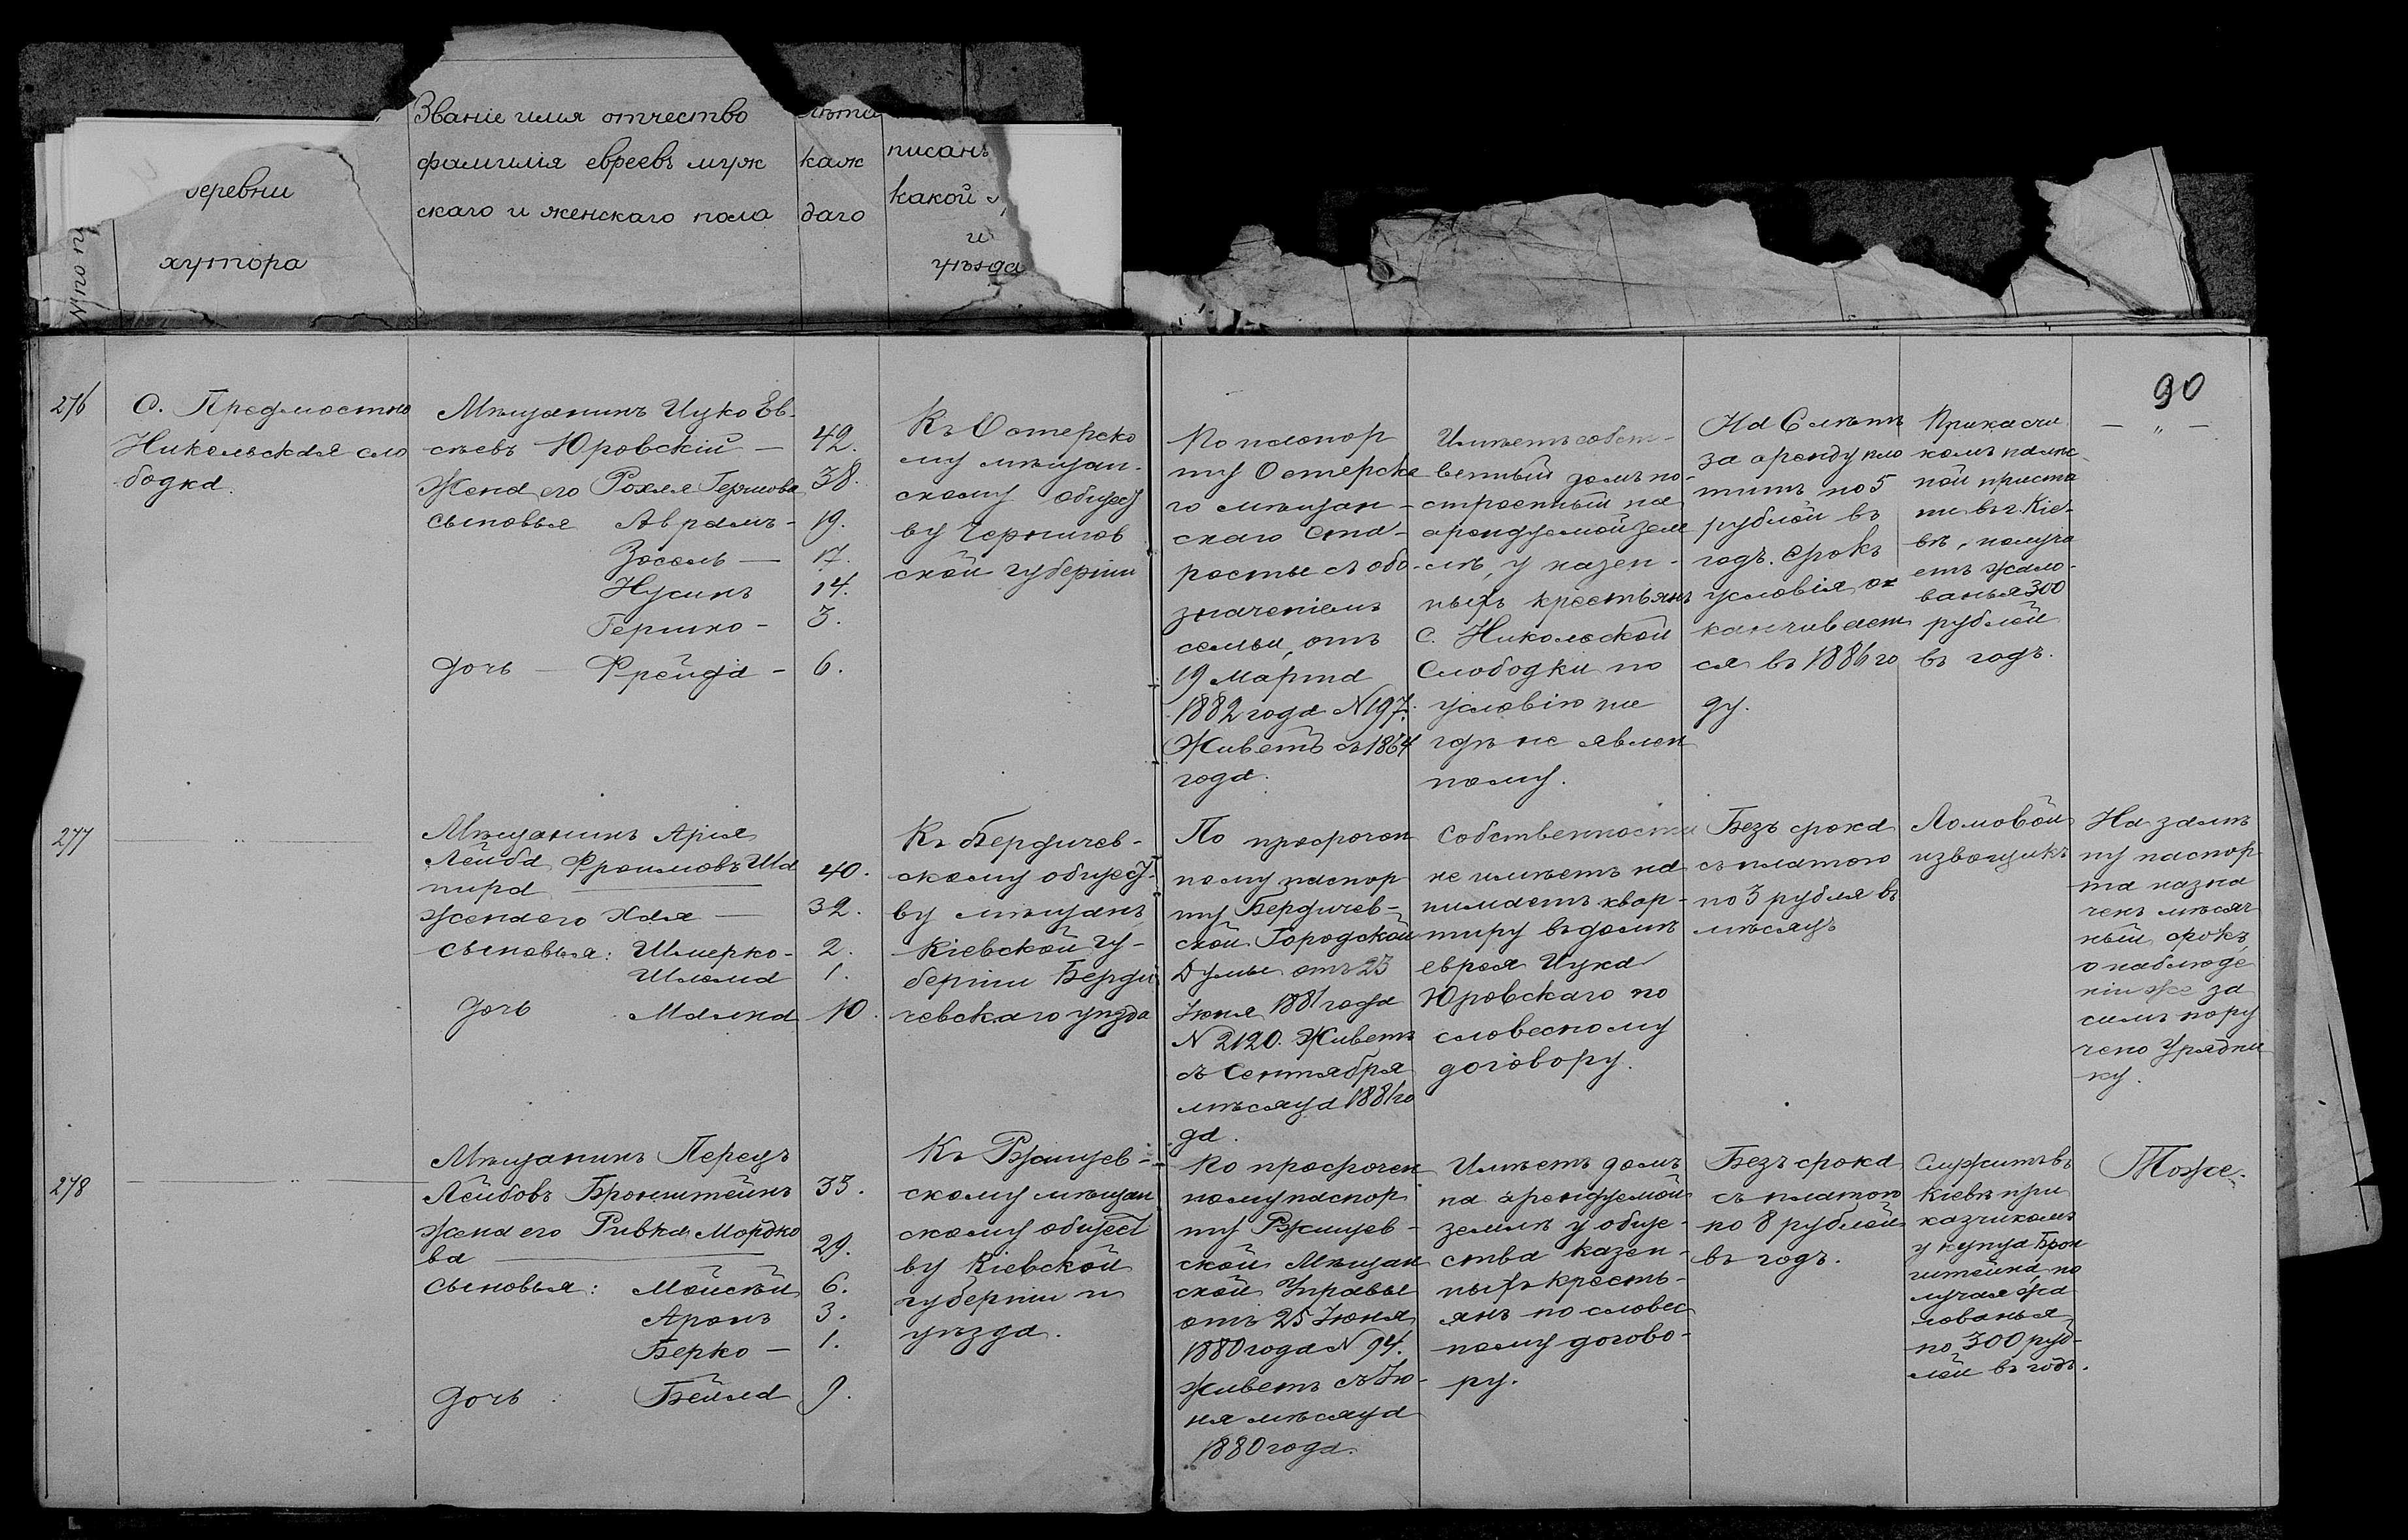 Званіе имя отчество
фамилія евреевъ муж
скаго и женскаго пола
лѣта
каж
даго
писанъ
какой
и
уѣзда
деревни
хутора
№ по п
90
276
С. Предмостно
Никольская сло
бодка.
Мѣщанинъ Ицко Ев-
сѣевъ Юровскій — 42.
Жена его Рохля Гершова 38.
сыновья Аврамъ - 19.
Зосель — 17.
Нусинъ 14.
Гершко - 3.
дочь — Фрейда - 6.
Къ Остерско
му мѣщан-
скому общест
ву Чернигов
ской губерніи
По паспор
ту Остерска
го мѣщан-
скаго Ста-
росты съ обо-
значеніемъ
семьи, отъ
19 Марта
1882 года N 197.
Живетъ съ 1864
года.
Имѣетъ собст-
венный домъ по-
строенный на
арендуемой зем
лѣ, у казен-
ныхъ крестьянъ
с. Никольской
Слободки по
условію ни
гдѣ не явлен
ному.
На 6 лѣтъ
за аренду пла
титъ по 5
рублей въ
годъ. Срокъ
условія ок
канчивает
ся въ 1886 го
ду.
Прикащи
комъ на
ной приста
ни въ г. Кіе-
вѣ, получа
етъ жало-
ванья 300
рублей
въ годъ.
— „ —
277
— „ —
Мѣщанинъ Арія
Лейба Фроимовъ Ша
пира — 40.
жена его Хая — 32.
сыновья: Шмерко - 2.
Шлома 1.
дочь Малка 10.
Къ Бердичев-
скому общест-
ву мѣщанъ
Кіевской гу-
берніи Берди
чевскаго уѣзда
По просрочен
ному паспор
ту Бердичев-
ской Городской
Думы отъ 23
Іюня 1881 года
N 2120. Живетъ
съ Сентября
мѣсяца 1881 го
да.
Собственности
не имѣетъ на
нимаетъ квар-
тиру въ домѣ
еврея Ицка
Юровскаго по
словесному
договору.
Безъ срока
съ платою
по 3 рубля въ
мѣсяцъ
Ломовой
извощикъ
На замѣ
ну паспор
та назна
ченъ мѣсяч
ный срокъ,
о наблюде
ніи же за
симъ пору
чено Урядни
ку.
278
— „ —
Мѣщанинъ Перецъ
Лейбовъ Бронштейнъ 33.
жена его Ривка Мордко
ва — 29.
сыновья: Мойсѣй 6.
Аронъ 3.
Берко — 1.
дочь : Бейла 9.
Къ Ржищев-
скому мѣщан
скому общест
ву Кіевской
губерніи и
уѣзда.
По просрочен
ному паспор
ту Ржищев-
ской Мѣщан
ской Управы
отъ 25 Іюня
1880 года N 94.
живетъ съ Ію-
ня мѣсяца
1880 года.
Имѣетъ домъ
на арендуемой
землѣ у обще-
ства казен-
ныхъ кресть-
янъ по словес
ному догово-
ру.
Безъ срока
съ платою
по 8 рублей
въ годъ.
Служитъ въ
Кіевѣ при
казчикомъ
у купца Брон
штейна, по
лучая жа
лованья
по 300 руб-
лей въ годъ.
Тоже.